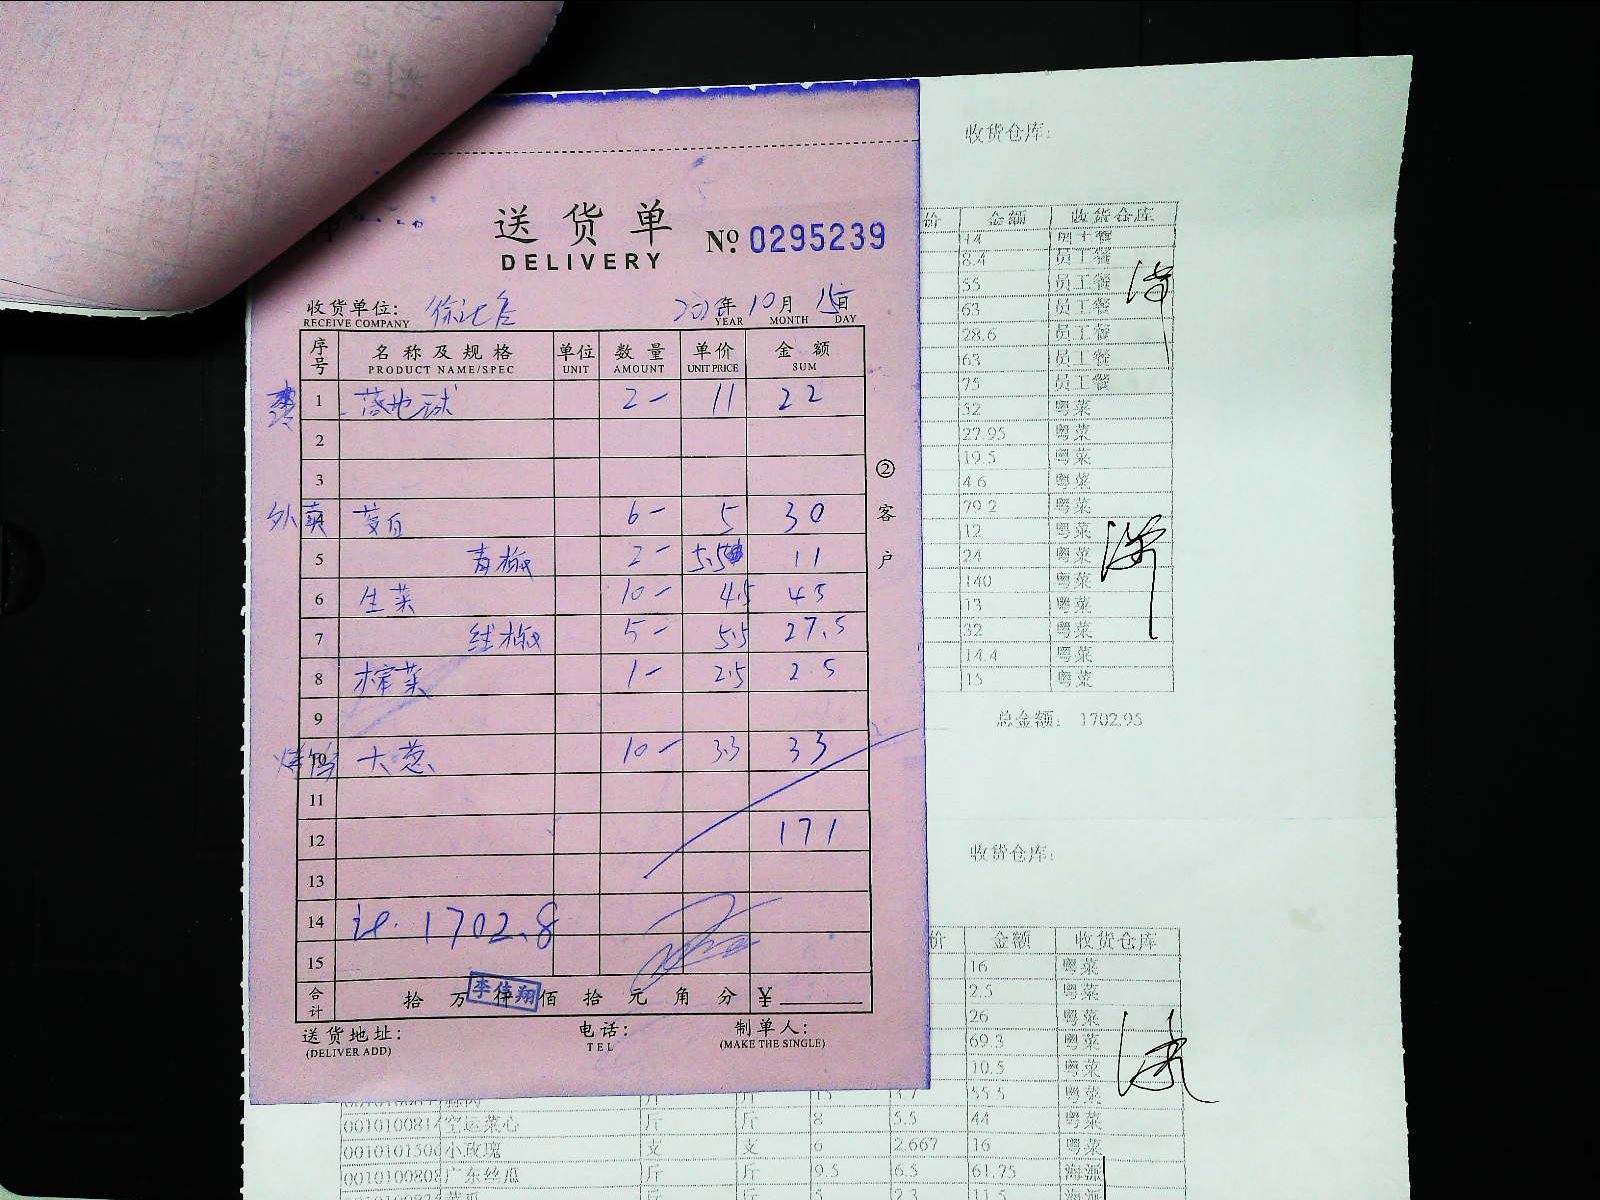 送货单
DELIVERY
№ 0295239
收货单位:
RECEIVE COMPANY
年 10月 15日
YEAR MONTH DAY
序号 名称及规格 单位 数量 单价 金额
PRODUCT NAME/SPEC UNIT AMOUNT UNIT PRICE SUM
1 落地球 2- 11 22
2
3
外卖 4 茭白 6- 5 30
5 青椒 2- 5.5 11
6 生菜 10- 4.5 45
7 红椒 5- 5.5 27.5
8 榨菜 1- 2.5 2.5
9
烤鸭 10 大葱 10- 3.3 33
11
12 171
13
14 计. 1702.8
15
合计 拾 万 仟 佰 拾 元 角 分 ¥
送货地址: 电话: 制单人:
(DELIVER ADD) TEL (MAKE THE SINGLE)
② 客户
收货仓库:
价 金额 收货仓库
14 员工餐
8.4 员工餐
55 员工餐
63 员工餐
28.6 员工餐
63 员工餐
75 员工餐
52 粤菜
27.95 粤菜
19.5 粤菜
4.6 粤菜
79.2 粤菜
12 粤菜
24 粤菜
140 粤菜
13 粤菜
32 粤菜
14.4 粤菜
15 粤菜
总金额: 1702.95
收货仓库:
价 金额 收货仓库
16 粤菜
2.5 粤菜
26 粤菜
69.3 粤菜
10.5 粤菜
斤 斤 15 3.7 55.5 粤菜
001010081 空运菜心 斤 斤 8 5.5 44 粤菜
001010150 小玫瑰 支 支 6 2.667 16 粤菜
001010080 广东丝瓜 斤 斤 9.5 6.5 61.75 海派
斤 斤 5 2.3 11.5 海派